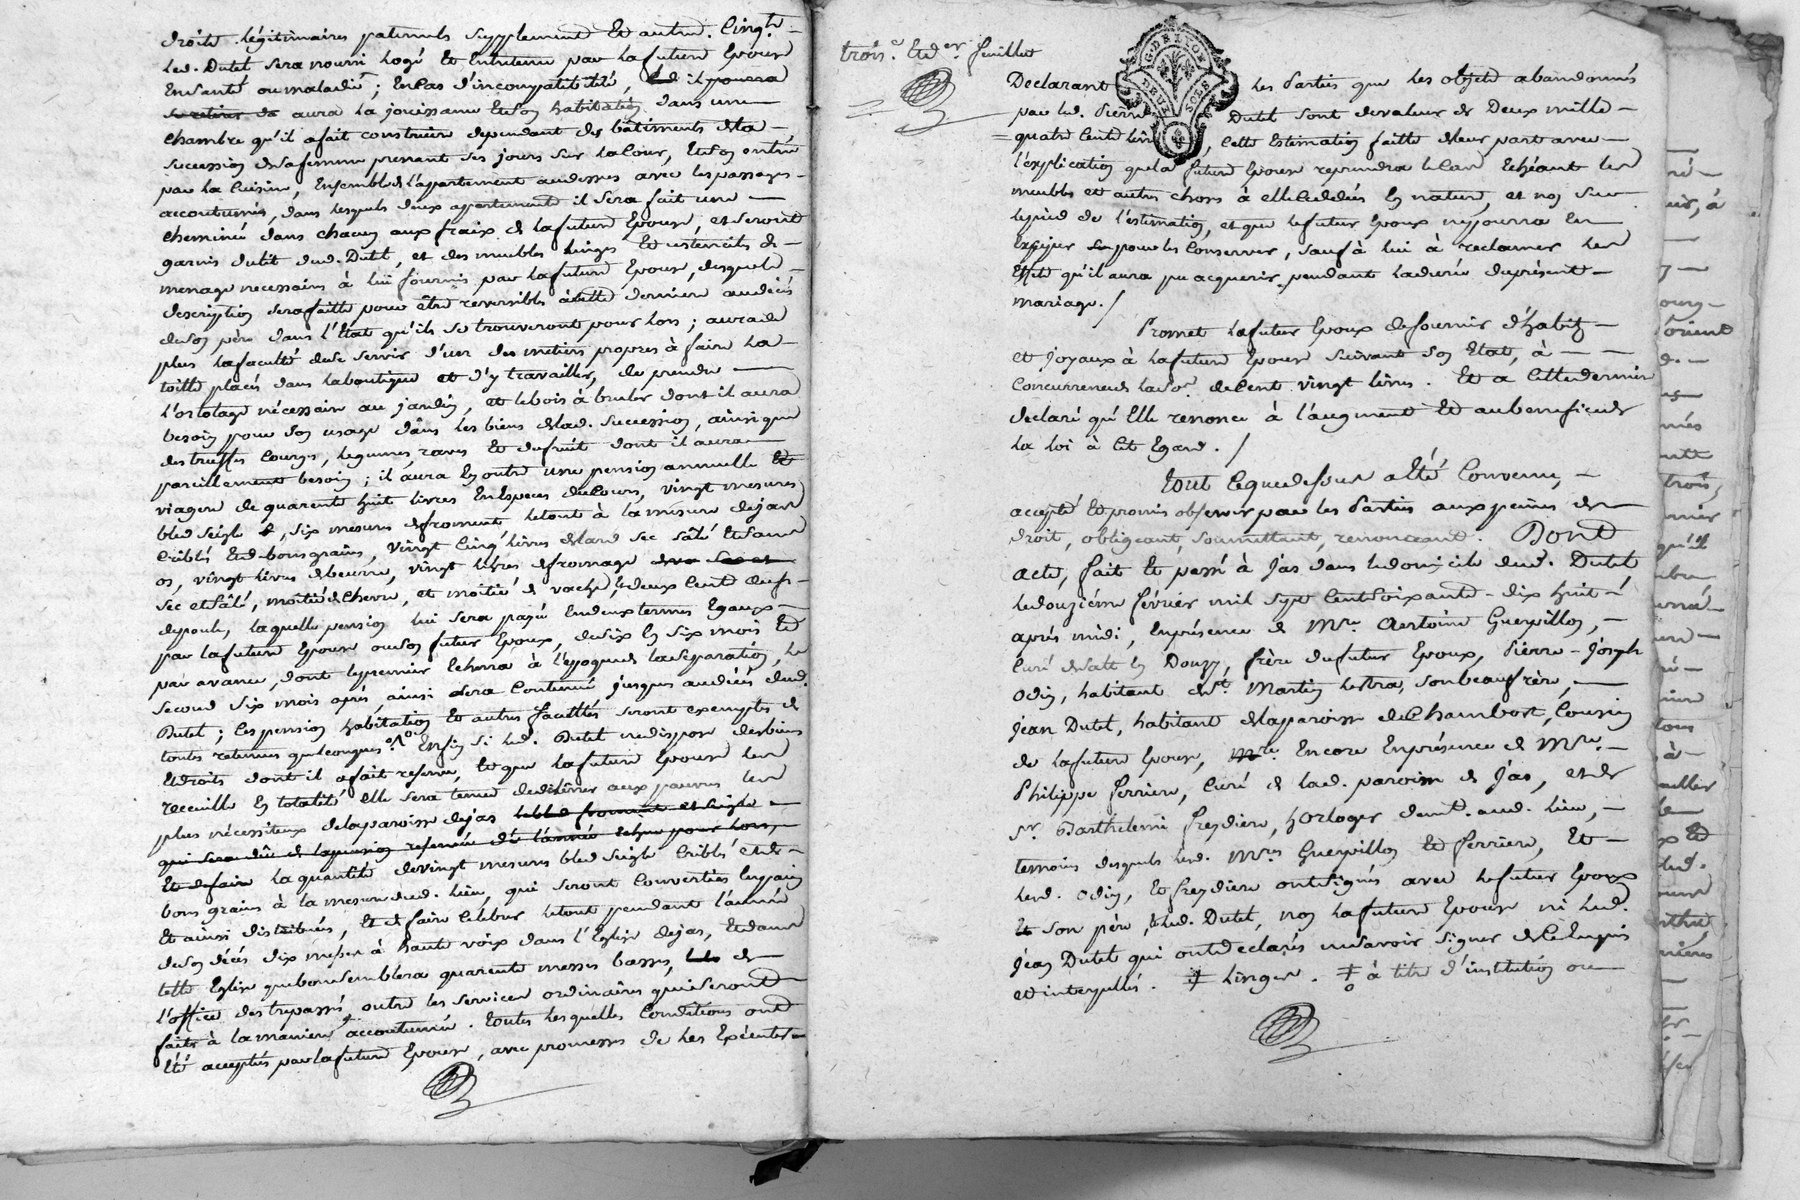 droits légitimaires paternels supplement Et autres. Cinqt.
led. Dutel sera nourri logé Et Entretenu par la future Epouse
En santé ou maladie; En cas d'incompatibilité, il pourra
se retirer aura la jouissance Et son habitation dans une
chambre qu'il a fait construire dependant des bâtiments de la
succession de sa femme prenant ses jours sur la Cour, Et son entrée
par la Cuisine, Ensemble de l'appartement au dessus avec les passages
accoutumés, dans lesquels deux appartements il sera fait une
cheminée dans chacun aux fraix de la future Epouse, et seront
garnis du lit dud. Dutel, et des meubles linges Et ustenciles de
menage necessaires à lui fournis par la future Epouse, desquels
description sera faitte pour être reversibles à cette derniere au decés
de son père dans l'Etat qu'ils se trouveront pour lors; aura de
plus la faculté de se servir d'un des metiers propres à faire la
toille placés dans la boutique et d'y travailler, de prendre
l'ortolage nécessaire au jardin, et le bois à bruler dont il aura
besoin pour son usage dans les biens de lad. succession, ainsi que
des truffes Courges, legumes, raves Et du fruit dont il aura
pareillement besoin; il aura En outre une pension annuelle Et
viagere de quarente huit livres En Especes de Cours, vingt mesures
bled seigle, six mesures de froment le tout à la mesure de jas
Criblés Et de bons grains, vingt Cinq livres de lard sec salé Et sans
os, vingt livres de beurre, vingt livres de fromage
sec et salé, moitié de chevre, et moitié de vache, & deux Cent d'œufs
de poule, laquelle pension lui sera payée En deux termes Egaux
par la future Epouse ou son futur Epoux, de six En six mois Et
par avance, dont le premier Echerra à l'epoque de la separation, le
second six mois après, ainsi sera Continué jusques au decés dud.
Dutel; les pension habitation Et autres facultés seront exemptes de
toutes retenues quelconques Enfin si led. Dutel ne dispose des biens
Et droits dont il a fait reserve, Et que la future Epouse les
recueille En totalité Elle sera tenue de delivrer aux pauvres les
plus nécessiteux de la paroisse de jas le bled froment et seigle
qui sera dûe de la pension reservée de l'année Echue pour lors,
Et de faire la quantité de vingt mesures bled seigle Criblé et de
bons grains à la mesure dud. lieu, qui seront Converties En pain
Et ainsi distribués, Et de faire Celebrer le tout pendant l'année
de son décés dix messes à haute voix dans l'Eglise de jas, Et dans
telle Eglise que bon semblera quarente messes basses, de
l'office des trepassés, outre les services ordinaires qui seront
faits à la maniere accoutumée. toutes lesquelles Conditions ont
Eté acceptées par la future Epouse, avec promesses de les Exécuter
trois.e Et der. feuillet
G. DE LYON
DEUX SOLS
Declarant les Parties que les objets abandonnés
par led. Pierre Dutel sont de valeur de Deux mille
quatre Cents livres, Cette Estimation faitte de leur part avec
l'explication que la future Epouse reprendra le Cas Echéant les
meubles et autres choses à elle Cedées En nature, et non sur
le pied de l'estimation, et que le futur Epoux ne pourra les
Exiger pour les Conserver, sauf à lui à reclamer les
Effets qu'il aura pu acquerir pendant la durée du présent
mariage. /
Promet le futur Epoux de fournir d'habits
et joyaux à la future Epouse suivant son Etat, à
Concurrence de la so.e de Cent vingt livres. Et a Cette derniere
declaré qu'Elle renonce à l'augment Et au benefice de
la loi à Cet Egard. /
Tout Ce que dessus a Eté Convenu,
accepté Et promis observer par les Parties aux peines de
droit, obligeant, soumettant, renonceant. Dont
acte, fait Et passé à Jas dans le domicile dud. Dutel
le douzième février mil sept Cent soixante-dix huit
après midi, En présence de Mre. Antoine Guerpillon,
Curé de Salt En Donzy, frère du futur Epoux, Pierre-Joseph
Odin, habitant de St. Martin Lestra, son beau frère,
Jean Dutel, habitant de la paroisse de Chambost, Cousin
de la future Epouse, Encore En présence de Mre.
Philippe ferriere, Curé de lad. paroisse de Jas, et de
Sr. Barthelemi freydiere, horloger demt. aud. lieu,
temoins desquels lesd. Mres Guerpillon Et ferriere, Et
lesd. Odin, Et freydiere ont signés avec le futur Epoux
Et son père, & led. Dutel, non la future Epouse ni led.
Jean Dutel qui ont declarés ne savoir signer de Ce Enquis
et interpellés. ‡ linges. ‡ à titre d'institution ou